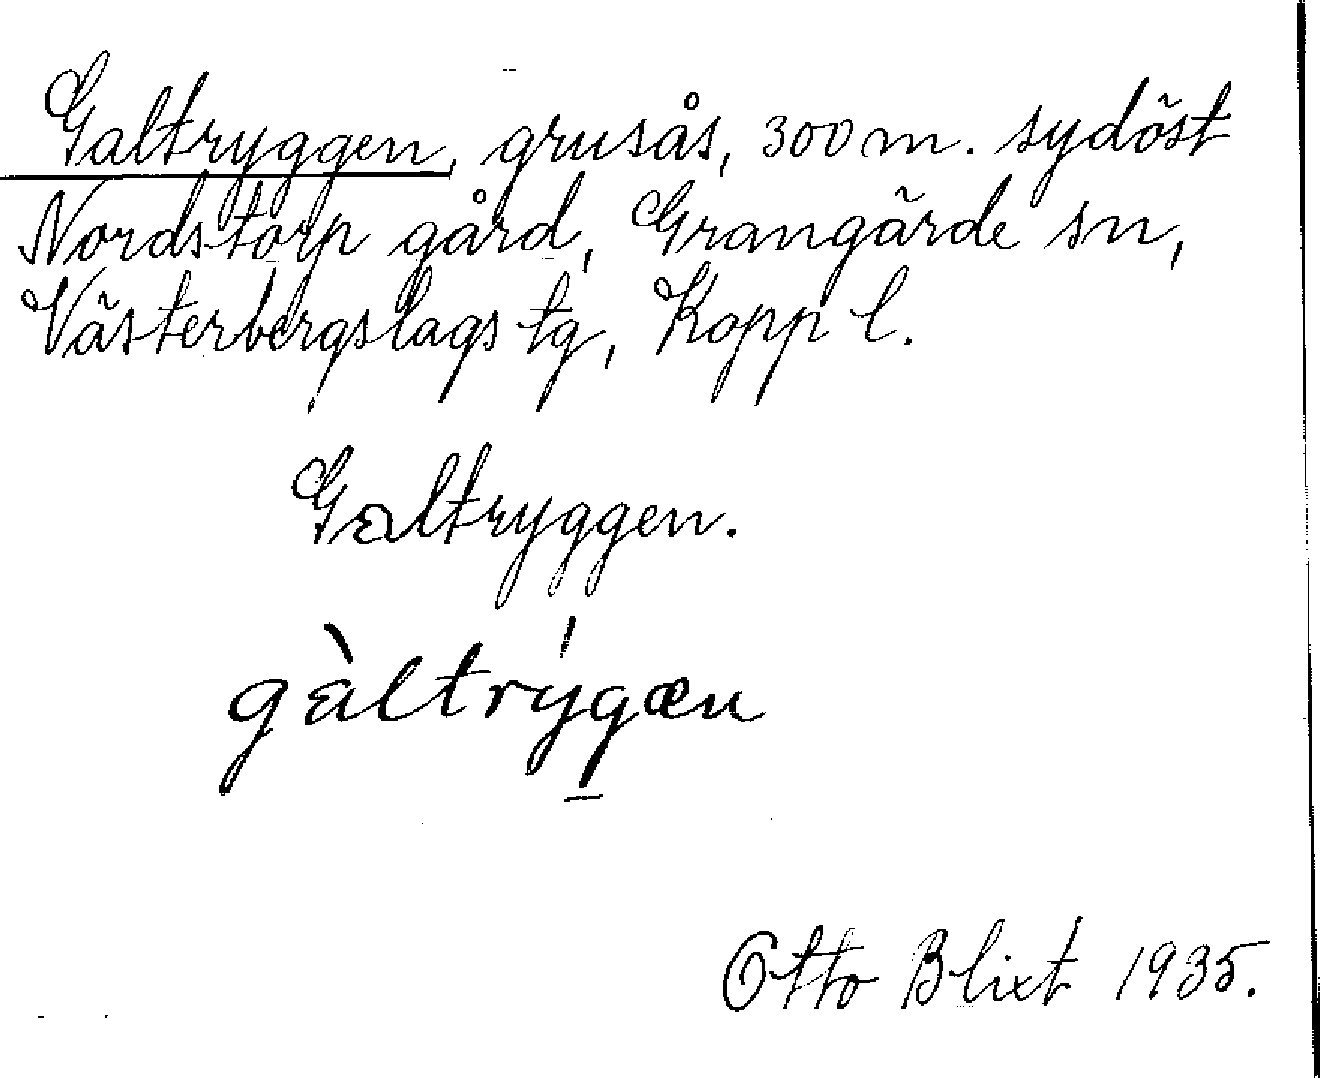 Galtryggen, grusås, 300 m. sydöst
Nordstorp gård, Grangärde sn,
Västerbergslags tg, Kopp l.
Galtryggen.
gàltrýgæn
Otto Blixt 1935.